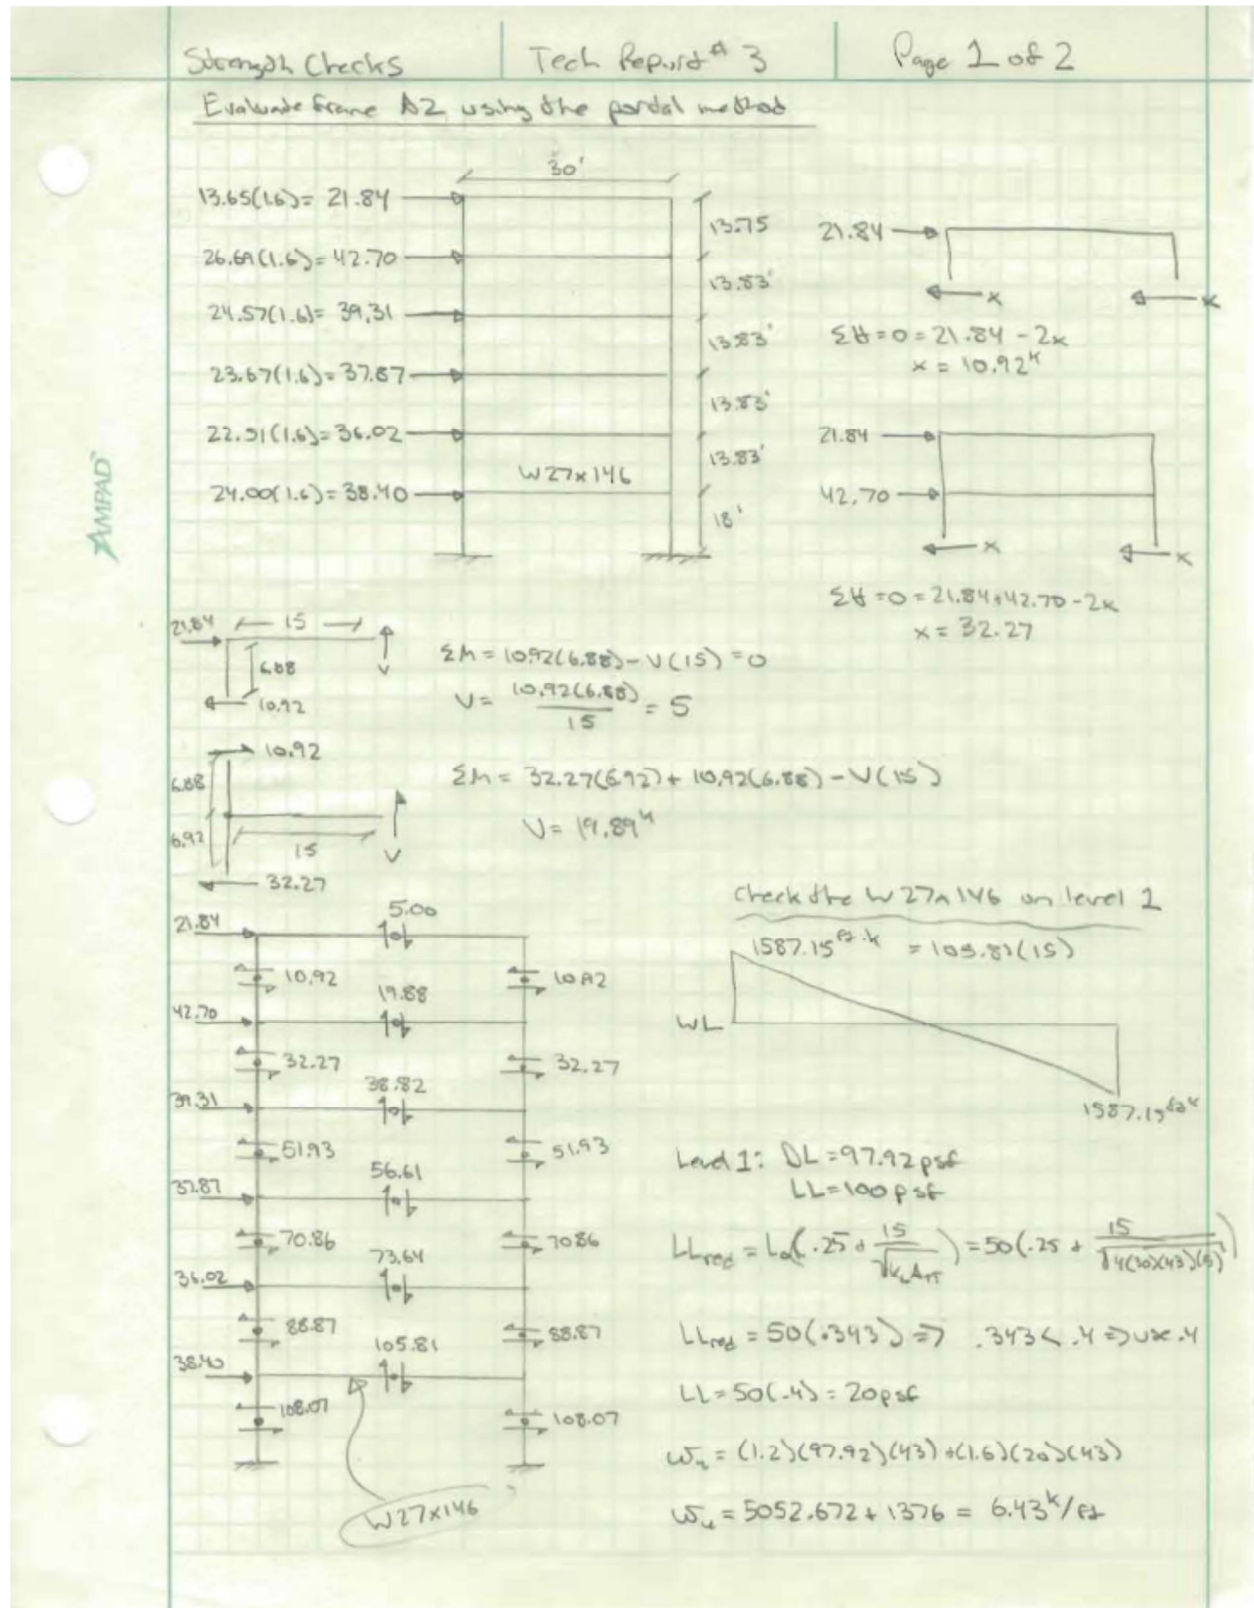 Strength Checks
Tech Report # 3
Page 1 of 2
Evaluate frame A2 using the portal method
30'
13.65(1.6) = 21.84
26.69(1.6) = 42.70
24.57(1.6) = 39.31
23.67(1.6) = 37.87
22.51(1.6) = 36.02
24.00(1.6) = 38.40
W27x146
13.75
13.83'
13.83'
13.83'
13.83'
18'
21.84
x
x
ΣH = 0 = 21.84 - 2x
x = 10.92ᵏ
21.84
42.70
x
x
ΣH = 0 = 21.84+42.70 - 2x
x = 32.27
AMPAD
21.84
15
6.88
V
10.92
ΣM = 10.92(6.88) - V(15) = 0
V = 10.92(6.88)/15 = 5
10.92
6.88
6.92
15
V
32.27
ΣM = 32.27(6.92) + 10.92(6.88) - V(15)
V = 19.89ᵏ
21.84
5.00
10.92
10.92
42.70
19.88
32.27
32.27
39.31
38.82
51.93
51.93
37.87
56.61
70.86
70.86
36.02
73.64
88.87
88.87
38.40
105.81
108.07
108.07
W27x146
Check the W27x146 on level 1
1587.15 ft·k = 105.81(15)
WL
1587.15 ft·k
Level 1: DL = 97.92 psf
LL = 100 psf
LLred = Lo(.25 + 15/√(KLAT)) = 50(.25 + 15/√(4(30)(43)(5)))
LLred = 50(.343) => .343 < .4 => use .4
LL = 50(.4) = 20psf
wu = (1.2)(97.92)(43) + (1.6)(20)(43)
wu = 5052.672 + 1376 = 6.43ᵏ/ft